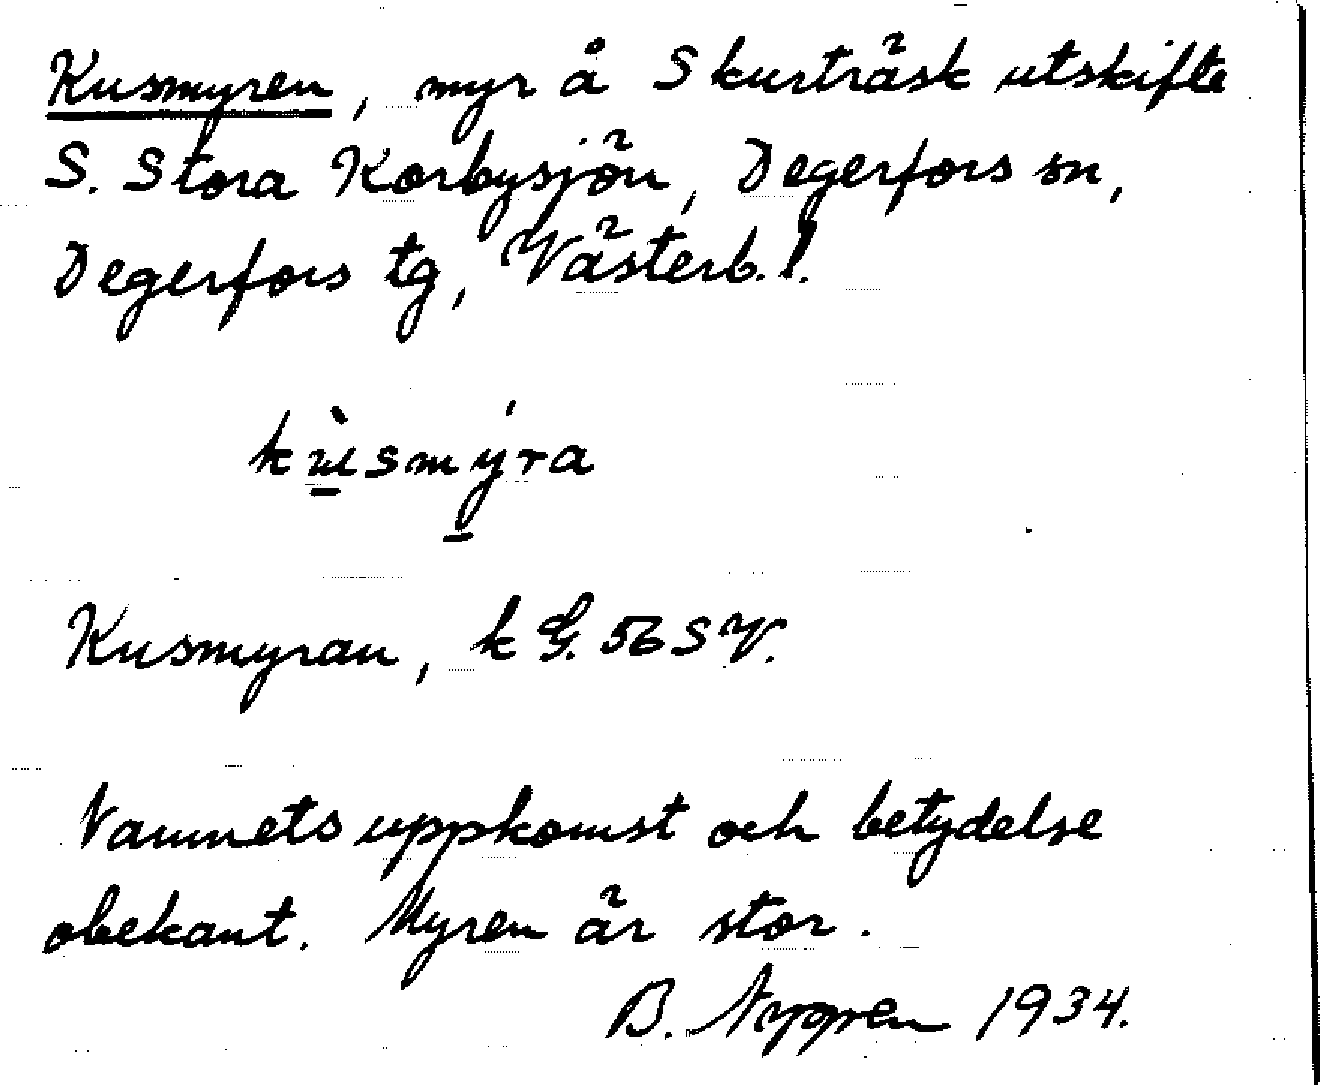 Kusmyren, myr å Skurträsk utskifte
S. Stora Korbysjön, Degerfors sn,
Degerfors tg, Västerb. l.
kùsmýra
Kusmyran, k G. 56 S V.
Namnets uppkomst och betydelse
obekant. Myren är stor.
B. 1934.